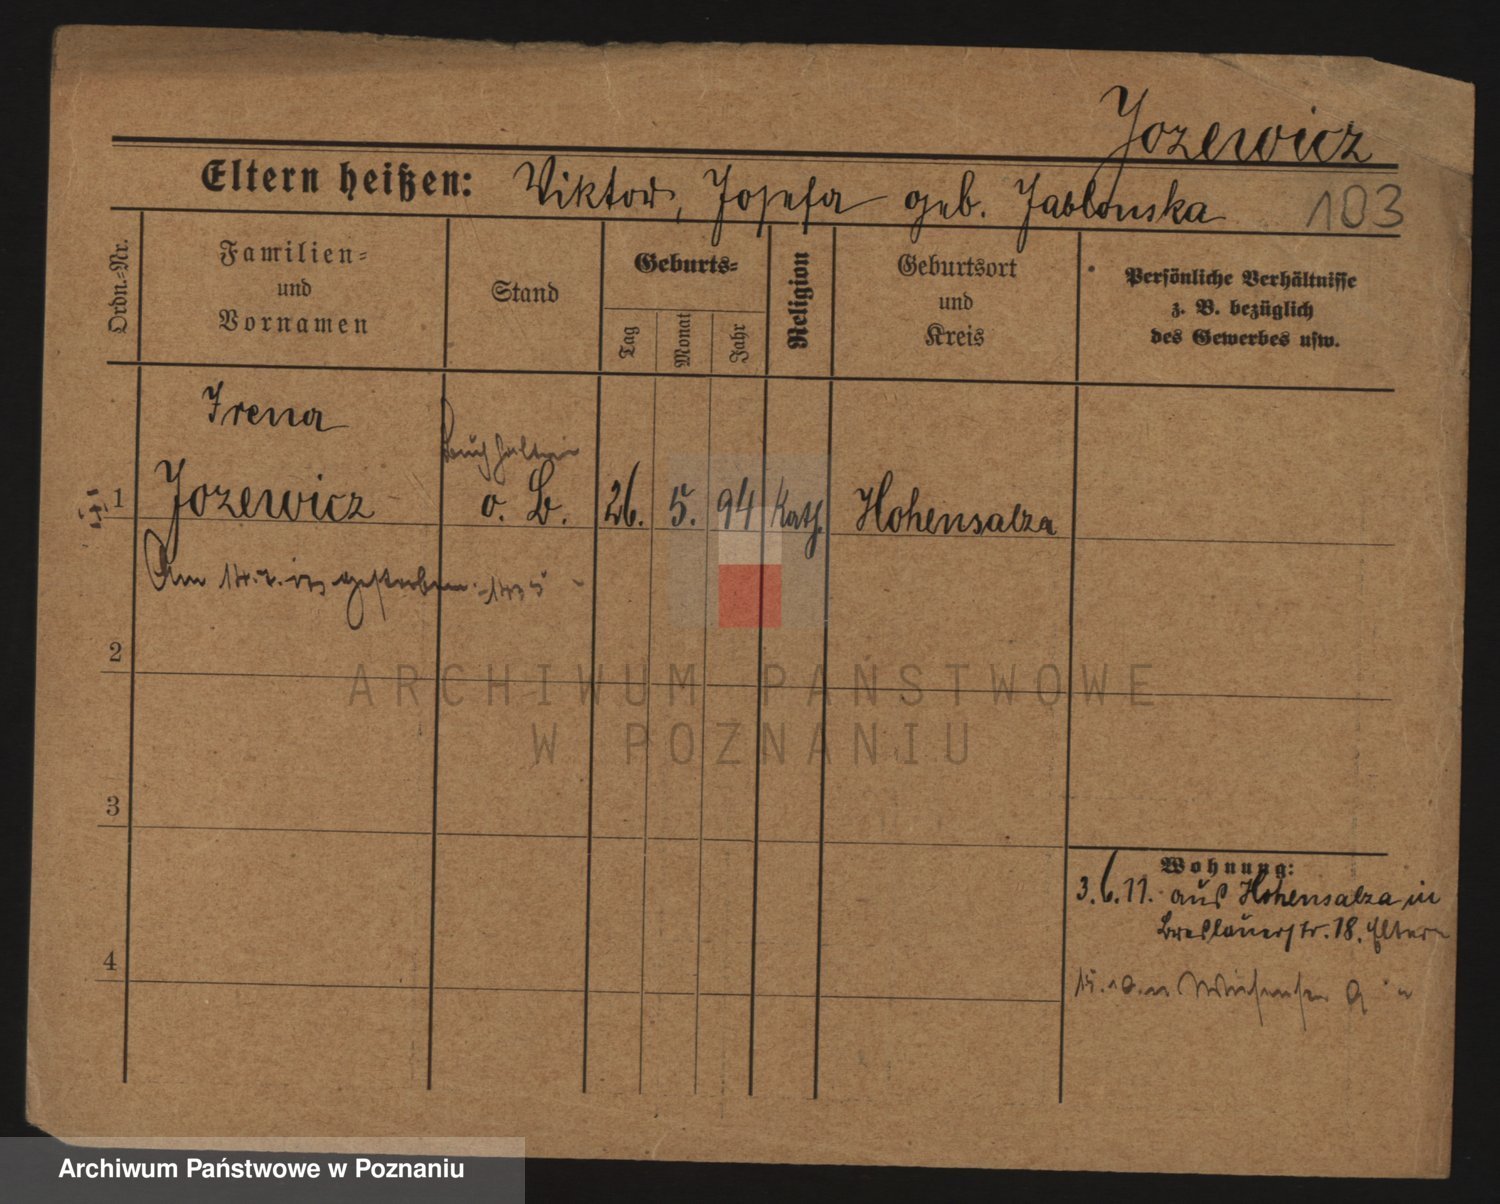 Jozewicz
Eltern heißen: Viktor, Josefa geb. Jablonska 103
Ordn.=Nr.
Familien=
und
Vornamen
Stand
Geburts=
Tag
Monat
Jahr
Religion
Geburtsort
und
Kreis
Persönliche Verhältnisse
z. B. bezüglich
des Gewerbes usw.
Irena
Buchhalterin
1 Jozewicz o. B. 26. 5. 94 Kath. Hohensalza
Am gestorben
2
ARCHIWUM PAŃSTWOWE
W POZNANIU
3
Wohnung:
3.6.11. aus Hohensalza in
Breslauerstr. 18. Eltern
4
Archiwum Państwowe w Poznaniu